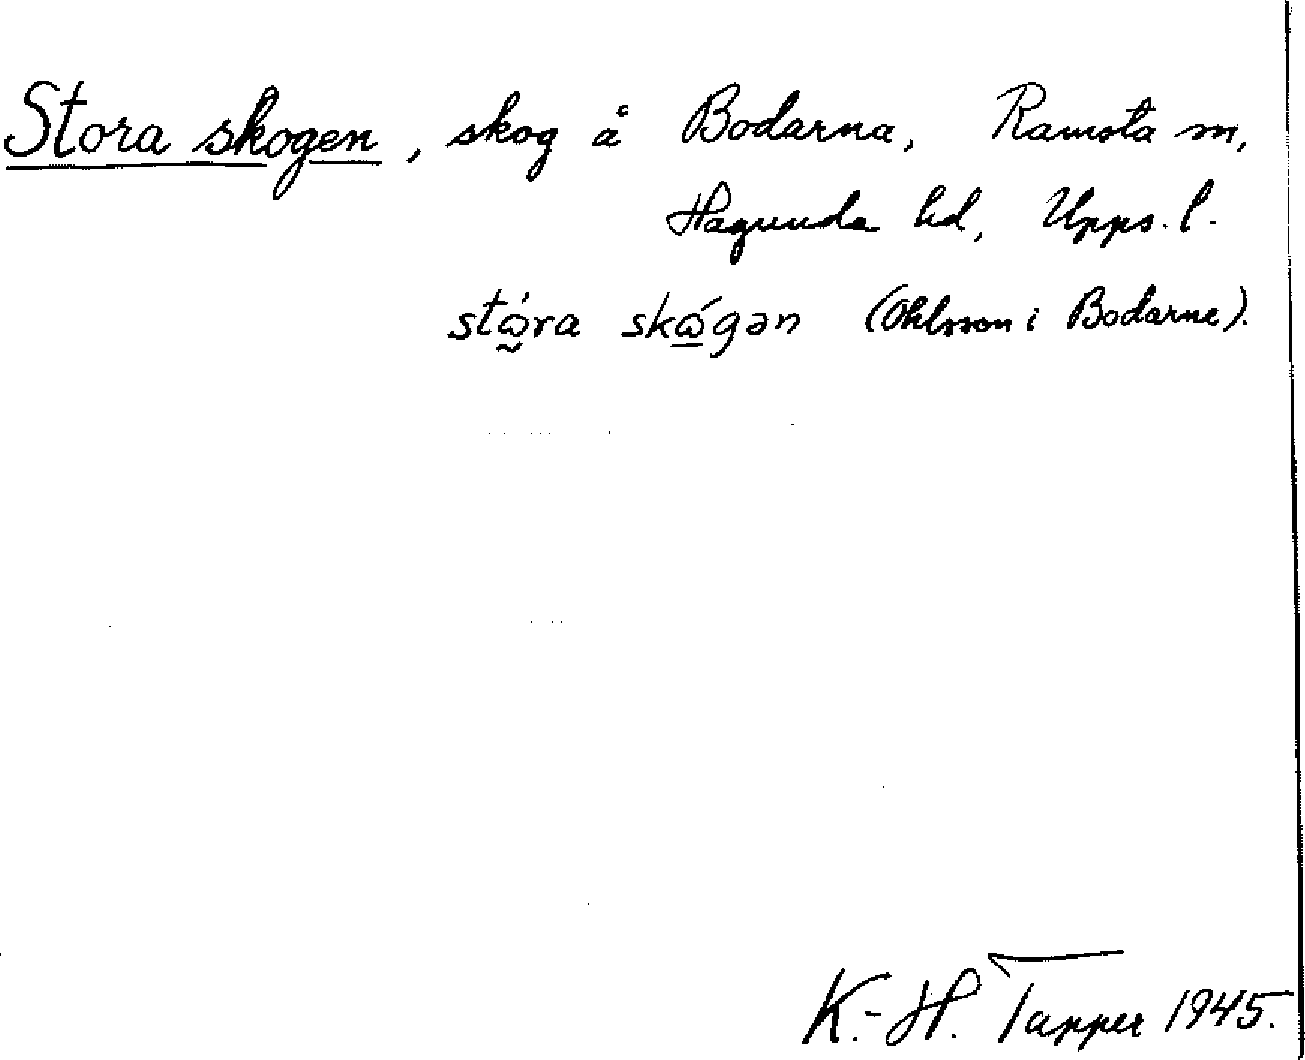 Stora skogen, skog å Bodarna, Ramsta sn,
Hagunda hd, Upps. l.
stώ̰ra skώ̱gən (Ohlsson i Bodarne).
K.-H. Tapper 1945.